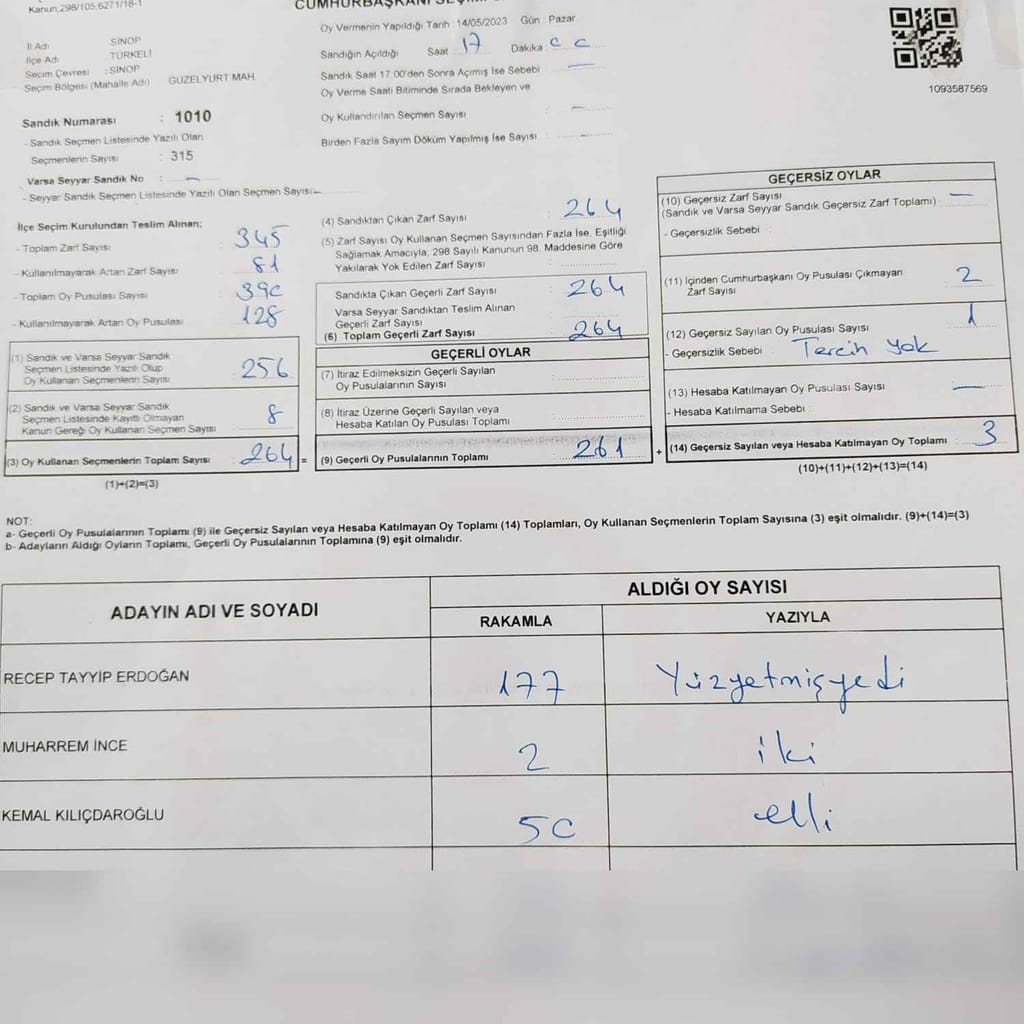 Kanun,298/105,6271/18-1
CUMHURBAŞKANI SEÇİM
Oy Vermenin Yapıldığı Tarih : 14/05/2023 Gün : Pazar
Sandığın Açıldığı Saat 17 Dakika 00
Sandık Saat 17:00'den Sonra Açılmış İse Sebebi : —
Oy Verme Saati Bitiminde Sırada Bekleyen ve
Oy Kullandırılan Seçmen Sayısı : —
Birden Fazla Sayım Döküm Yapılmış İse Sayısı : —
1093587569
İl Adı : SİNOP
İlçe Adı : TÜRKELİ
Seçim Çevresi : SİNOP
Seçim Bölgesi (Mahalle Adı) GÜZELYURT MAH.
Sandık Numarası : 1010
- Sandık Seçmen Listesinde Yazılı Olan
Seçmenlerin Sayısı : 315
Varsa Seyyar Sandık No : —
- Seyyar Sandık Seçmen Listesinde Yazılı Olan Seçmen Sayısı: —
İlçe Seçim Kurulundan Teslim Alınan;
- Toplam Zarf Sayısı 345
- Kullanılmayarak Artan Zarf Sayısı 81
- Toplam Oy Pusulası Sayısı 390
- Kullanılmayarak Artan Oy Pusulası 128
(1) Sandık ve Varsa Seyyar Sandık
Seçmen Listesinde Yazılı Olup
Oy Kullanan Seçmenlerin Sayısı 256
(2) Sandık ve Varsa Seyyar Sandık
Seçmen Listesinde Kayıtlı Olmayan
Kanun Gereği Oy Kullanan Seçmen Sayısı 8
(3) Oy Kullanan Seçmenlerin Toplam Sayısı 264 =
(1)+(2)=(3)
(4) Sandıktan Çıkan Zarf Sayısı : 264
(5) Zarf Sayısı Oy Kullanan Seçmen Sayısından Fazla İse, Eşitliği
Sağlamak Amacıyla, 298 Sayılı Kanunun 98. Maddesine Göre
Yakılarak Yok Edilen Zarf Sayısı :
Sandıkta Çıkan Geçerli Zarf Sayısı : 264
Varsa Seyyar Sandıktan Teslim Alınan
Geçerli Zarf Sayısı :
(6) Toplam Geçerli Zarf Sayısı : 264
GEÇERLİ OYLAR
(7) İtiraz Edilmeksizin Geçerli Sayılan
Oy Pusulalarının Sayısı :
(8) İtiraz Üzerine Geçerli Sayılan veya
Hesaba Katılan Oy Pusulası Toplamı :
(9) Geçerli Oy Pusulalarının Toplamı : 261 +
GEÇERSİZ OYLAR
(10) Geçersiz Zarf Sayısı —
(Sandık ve Varsa Seyyar Sandık Geçersiz Zarf Toplamı) :
- Geçersizlik Sebebi :
(11) İçinden Cumhurbaşkanı Oy Pusulası Çıkmayan
Zarf Sayısı : 2
(12) Geçersiz Sayılan Oy Pusulası Sayısı : 1
- Geçersizlik Sebebi : Tercih yok
(13) Hesaba Katılmayan Oy Pusulası Sayısı : —
- Hesaba Katılmama Sebebi :
(14) Geçersiz Sayılan veya Hesaba Katılmayan Oy Toplamı : 3
(10)+(11)+(12)+(13)=(14)
NOT:
a- Geçerli Oy Pusulalarının Toplamı (9) ile Geçersiz Sayılan veya Hesaba Katılmayan Oy Toplamı (14) Toplamları, Oy Kullanan Seçmenlerin Toplam Sayısına (3) eşit olmalıdır. (9)+(14)=(3)
b- Adayların Aldığı Oyların Toplamı, Geçerli Oy Pusulalarının Toplamına (9) eşit olmalıdır.
ADAYIN ADI VE SOYADI ALDIĞI OY SAYISI
RAKAMLA YAZIYLA
RECEP TAYYİP ERDOĞAN 177 Yüzyetmişyedi
MUHARREM İNCE 2 iki
KEMAL KILIÇDAROĞLU 50 elli